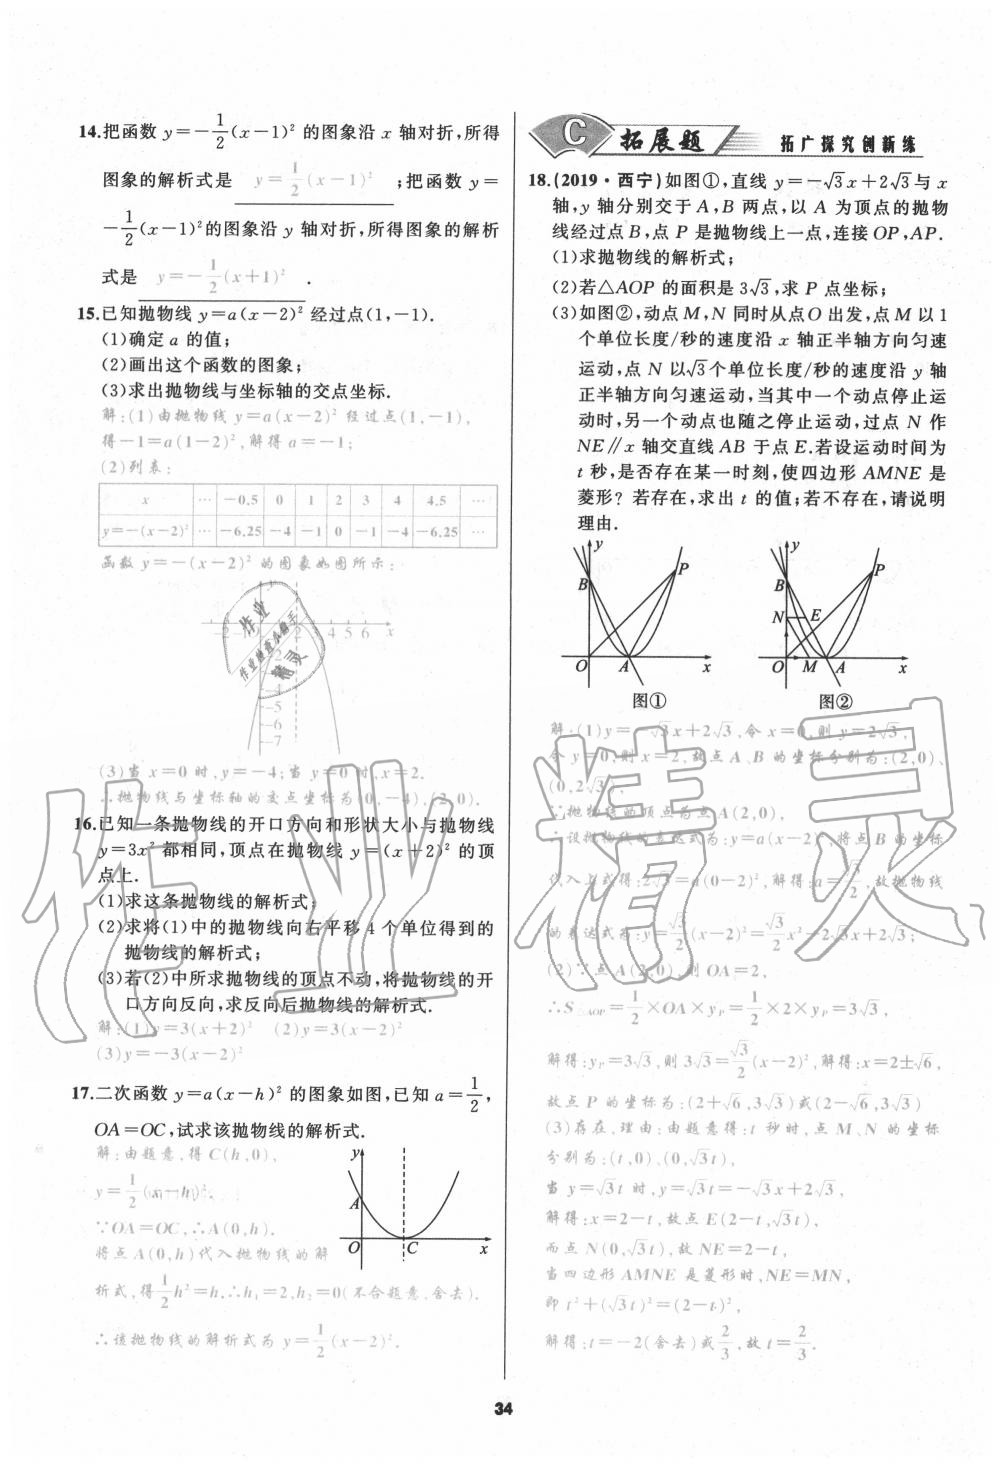 14.把函数 y=-1/2(x-1)² 的图象沿 x 轴对折,所得
图象的解析式是 y=1/2(x-1)² ;把函数 y=
-1/2(x-1)²的图象沿 y 轴对折,所得图象的解析
式是 y=-1/2(x+1)² .
15.已知抛物线 y=a(x-2)² 经过点(1,-1).
(1)确定 a 的值;
(2)画出这个函数的图象;
(3)求出抛物线与坐标轴的交点坐标.
解:(1)由抛物线 y=a(x-2)² 经过点(1,-1),
得-1=a(1-2)²,解得 a=-1;
(2)列表:
x … -0.5 0 1 2 3 4 4.5 …
y=-(x-2)² … -6.25 -4 -1 0 -1 -4 -6.25 …
函数 y=-(x-2)² 的图象如图所示:
(3)当 x=0 时,y=-4;当 y=0 时,x=2.
∴抛物线与坐标轴的交点坐标为(0,-4),(2,0).
16.已知一条抛物线的开口方向和形状大小与抛物线
y=3x² 都相同,顶点在抛物线 y=(x+2)² 的顶
点上.
(1)求这条抛物线的解析式;
(2)求将(1)中的抛物线向右平移 4 个单位得到的
抛物线的解析式;
(3)若(2)中所求抛物线的顶点不动,将抛物线的开
口方向反向,求反向后抛物线的解析式.
解:(1)y=3(x+2)² (2)y=3(x-2)²
(3)y=-3(x-2)²
17.二次函数 y=a(x-h)² 的图象如图,已知 a=1/2,
OA=OC,试求该抛物线的解析式.
解:由题意,得 C(h,0),
y=1/2(x-h)².
∵OA=OC,∴A(0,h).
将点 A(0,h)代入抛物线的解
析式,得1/2h²=h.∴h₁=2,h₂=0(不合题意,舍去).
∴该抛物线的解析式为 y=1/2(x-2)².
y
A
O C x
C 拓展题 拓广探究创新练
18.(2019·西宁)如图①,直线 y=-√3x+2√3与 x
轴,y 轴分别交于 A,B 两点,以 A 为顶点的抛物
线经过点 B,点 P 是抛物线上一点,连接 OP,AP.
(1)求抛物线的解析式;
(2)若△AOP 的面积是 3√3,求 P 点坐标;
(3)如图②,动点 M,N 同时从点O 出发,点 M 以 1
个单位长度/秒的速度沿 x 轴正半轴方向匀速
运动,点 N 以√3个单位长度/秒的速度沿 y 轴
正半轴方向匀速运动,当其中一个动点停止运
动时,另一个动点也随之停止运动,过点 N 作
NE∥x 轴交直线 AB 于点 E.若设运动时间为
t 秒,是否存在某一时刻,使四边形 AMNE 是
菱形? 若存在,求出 t 的值;若不存在,请说明
理由.
y
B P
O A x
图①
y
B P
N E
O M A x
图②
解:(1)y=-√3x+2√3,令 x=0,则 y=2√3,
令 y=0,则 x=2,故点 A、B 的坐标分别为:(2,0)、
(0,2√3),
∵抛物线的顶点为点 A(2,0),
∴设抛物线的表达式为:y=a(x-2)²,将点 B 的坐标
代入上式得:2√3=a(0-2)²,解得:a=√3/2,故抛物线
的表达式为:y=√3/2(x-2)²=√3/2x²-2√3x+2√3;
(2)∵点 A(2,0),则 OA=2,
∴S△AOP=1/2×OA×yP=1/2×2×yP=3√3,
解得:yP=3√3,则 3√3=√3/2(x-2)²,解得:x=2±√6,
故点 P 的坐标为:(2+√6,3√3)或(2-√6,3√3)
(3)存在,理由:由题意得:t 秒时,点 M、N 的坐标
分别为:(t,0)、(0,√3t),
当 y=√3t 时,y=√3t=-√3x+2√3,
解得:x=2-t,故点 E(2-t,√3t),
而点 N(0,√3t),故 NE=2-t,
当四边形 AMNE 是菱形时,NE=MN,
即 t²+(√3t)²=(2-t)²,
解得:t=-2(舍去)或2/3,故 t=2/3.
34
作业精灵